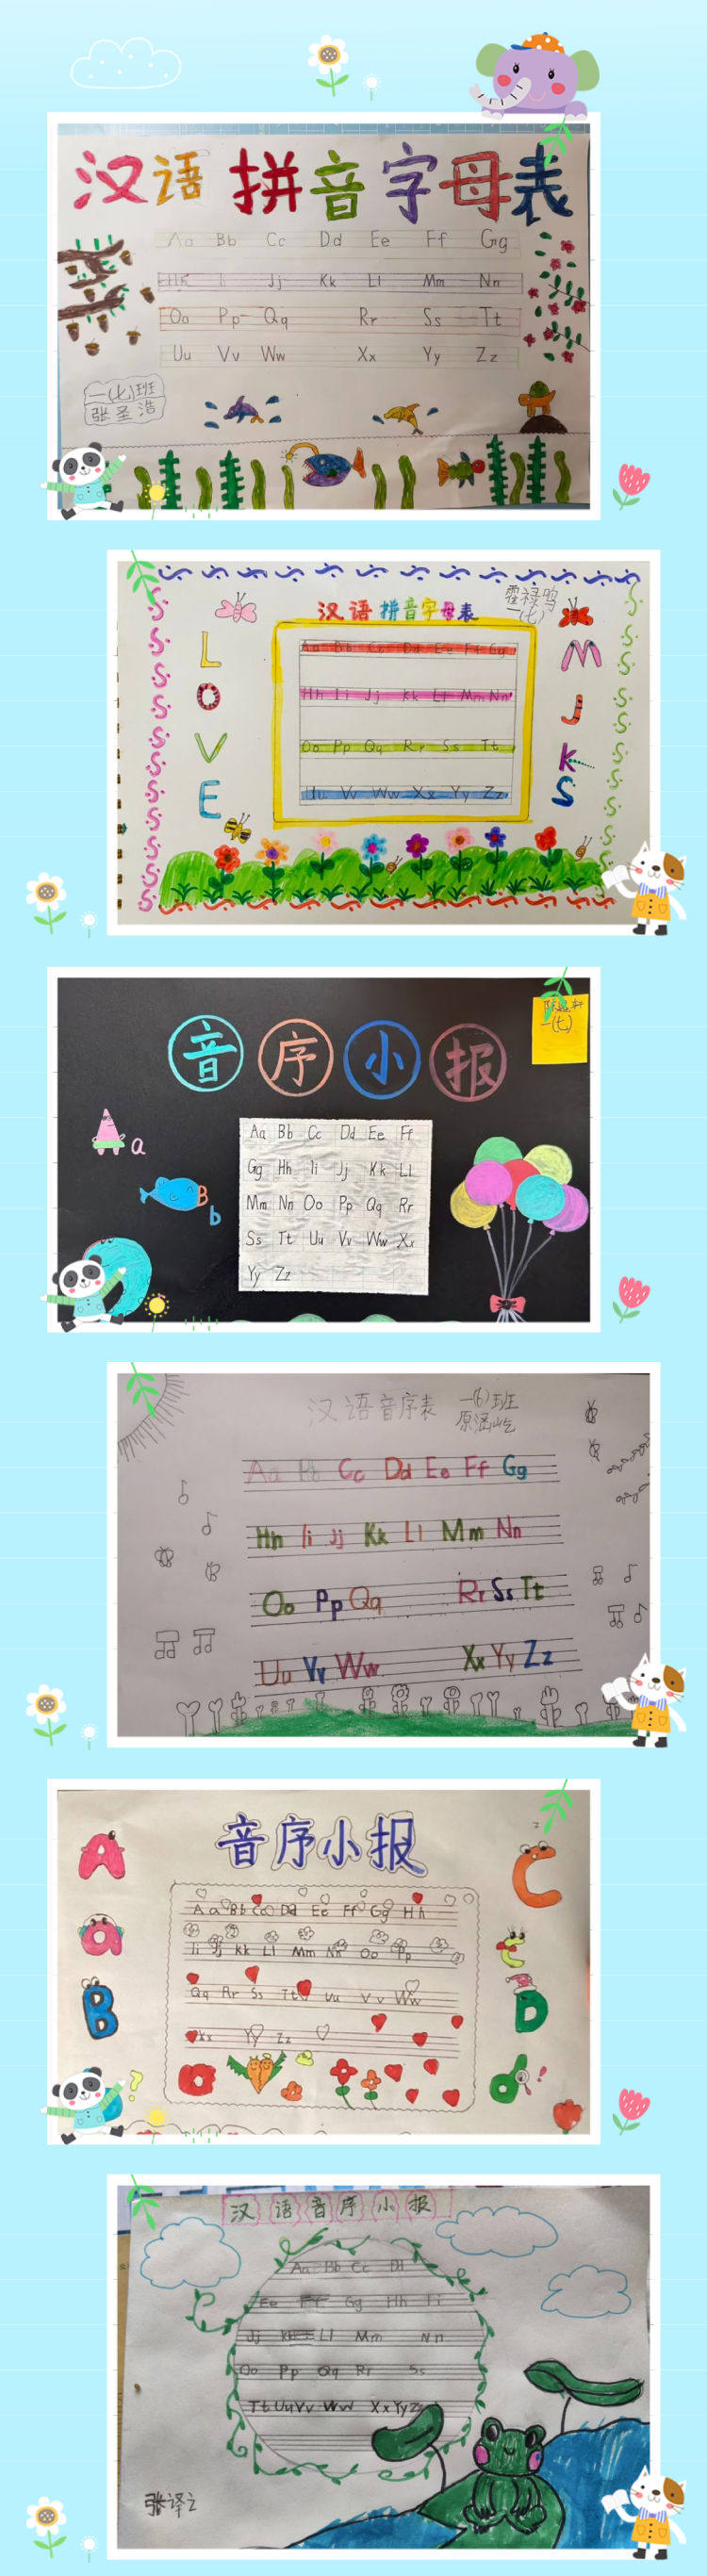 汉语拼音字母表
Aa Bb Cc Dd Ee Ff Gg
Hh Ii Jj Kk Ll Mm Nn
Oo Pp Qq Rr Ss Tt
Uu Vv Ww Xx Yy Zz
一(七)班
张圣浩
汉语拼音字母表
霍禄鸣
一(七)
LOVE
Aa Bb Cc Dd Ee Ff Gg
Hh Ii Jj Kk Ll Mm Nn
Oo Pp Qq Rr Ss Tt
Uu Vv Ww Xx Yy Zz
M
J
K
S
音序小报
一(七)
a
B
b
Aa Bb Cc Dd Ee Ff
Gg Hh Ii Jj Kk Ll
Mm Nn Oo Pp Qq Rr
Ss Tt Uu Vv Ww Xx
Yy Zz
汉语音序表
一(6)班
原涵屹
Aa Bb Cc Dd Ee Ff Gg
Hh Ii Jj Kk Ll Mm Nn
Oo Pp Qq Rr Ss Tt
Uu Vv Ww Xx Yy Zz
音序小报
A
a
B
Aa Bb Cc Dd Ee Ff Gg Hh
Ii Jj Kk Ll Mm Nn Oo Pp
Qq Rr Ss Tt Uu Vv Ww
Xx Yy Zz
C
c
D
d
汉语音序小报
Aa Bb Cc Dd
Ee Ff Gg Hh Ii
Jj Kk Ll Mm Nn
Oo Pp Qq Rr Ss
Tt Uu Vv Ww Xx Yy Zz
张译之